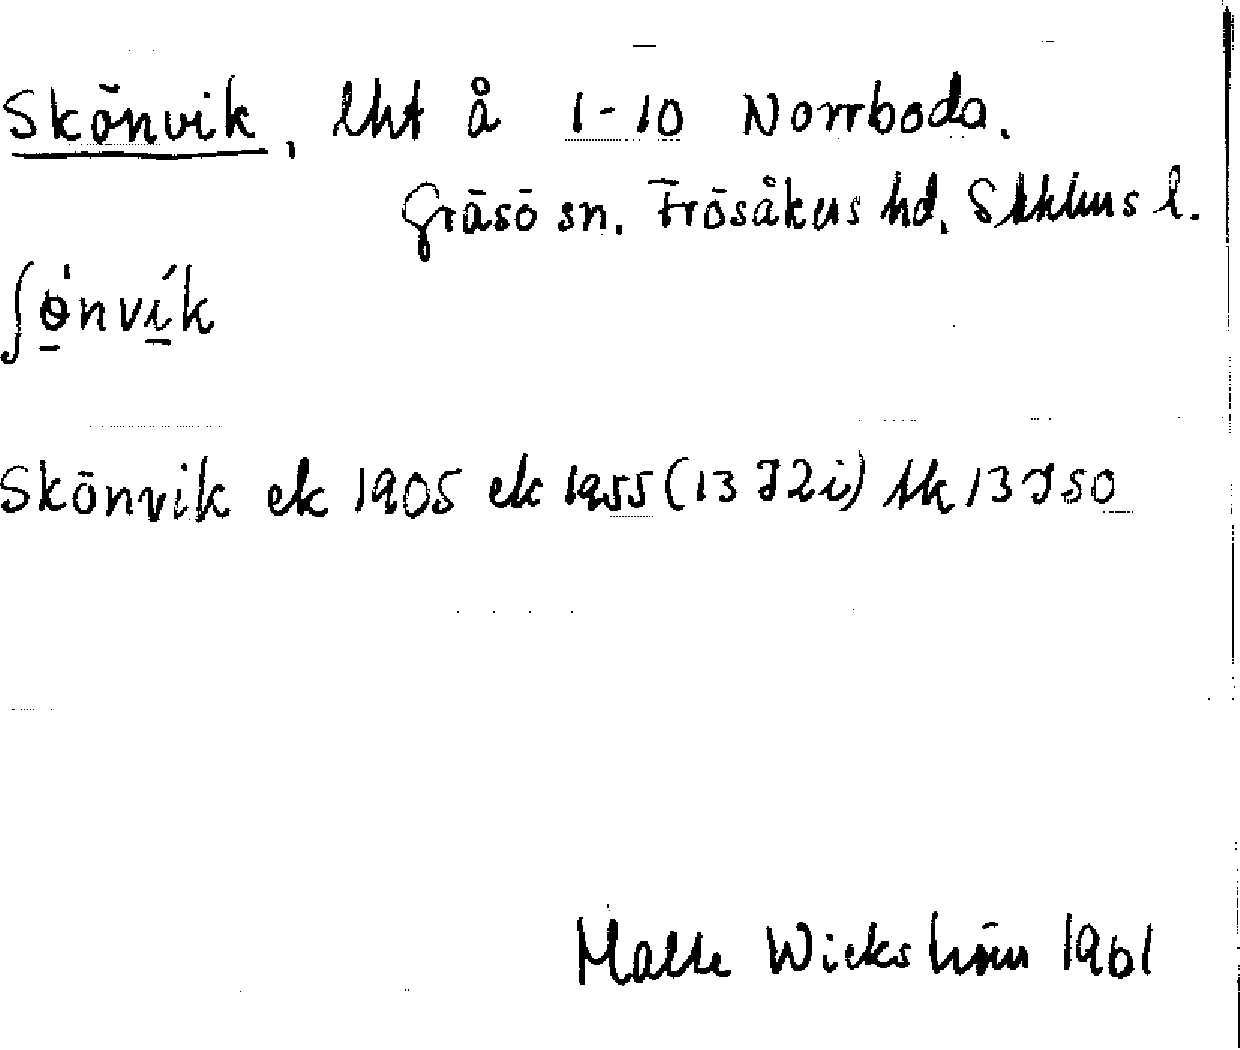 Skönvik, lht å 1-10 Norrboda.
Gräsö sn. Frösåkers hd. Sthlms l.
ʃønvik
Skönvik ek 1905 ek 1955 (13 J2i) tk 13 J SO
Malte Wickström 1961